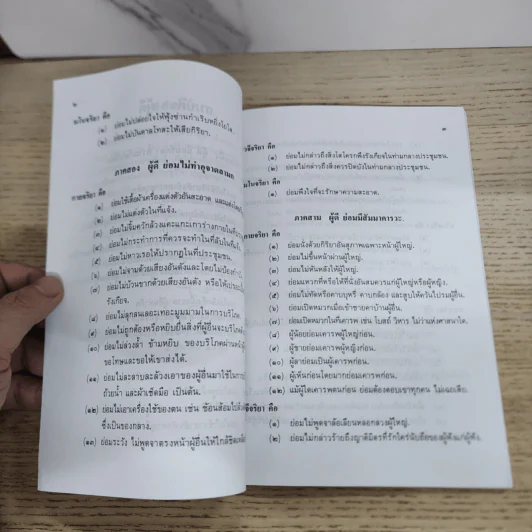 ๒
มโนจริยา คือ
(๑) ย่อมไม่ปล่อยใจให้ฟุ้งซ่านกำเริบหยิ่งโยโส
(๒) ย่อมไม่บันดาลโทสะให้เสียกิริยา
ภาคสอง ผู้ดี ย่อมไม่ทำอุจาดลามก
กายจริยา คือ
(๑) ย่อมใช้เสื้อผ้าเครื่องแต่งตัวอันสะอาด และแต่ง
(๒) ย่อมไม่แต่งตัวในที่แจ้ง
(๓) ย่อมไม่จิ้มควักล้วงแคะแกะเการ่างกายในที่
(๔) ย่อมไม่กระทำการที่ควรจะทำในที่ลับในที่แจ้ง
(๕) ย่อมไม่หาวเรอให้ปรากฏในที่ประชุมชน
(๖) ย่อมไม่จามด้วยเสียงอันดังและโดยไม่ป้องกำ
(๗) ย่อมไม่บ้วนขากด้วยเสียงอันดัง หรือให้
รังเกียจ
(๘) ย่อมไม่ลุกลนเลอะเทอะมูมมามในการบริโภค
(๙) ย่อมไม่ถูกต้องหรือหยิบยื่นสิ่งที่ผู้อื่นจะบริโภค
(๑๐) ย่อมไม่ล่วงล้ำ ข้ามหยิบ ของบริโภคผ่านหน้าผู้
ขอโทษและขอให้เขาส่งได้
(๑๑) ย่อมไม่ละลาบละล้วงเอาของผู้อื่นมาใช้ในการ
ถ้วยน้ำ และผ้าเช็ดมือ เป็นต้น
(๑๒) ย่อมไม่เอาเครื่องใช้ของตน เช่น ช้อนส้อมไป
ซึ่งเป็นของกลาง
(๑๓) ย่อมระวัง ไม่พูดจาตรงหน้าผู้อื่นให้ใกล้ชิด
๓
วจีจริยา คือ
(๑) ย่อมไม่กล่าวถึงสิ่งโสโครกพึงรังเกียจในท่ามกลางประชุมชน
(๒) ย่อมไม่กล่าวถึงสิ่งควรปิดบังในท่ามกลางประชุมชน
มโนจริยา คือ
(๑) ย่อมพึงใจที่จะรักษาความสะอาด
ภาคสาม ผู้ดี ย่อมมีสัมมาคารวะ
กายจริยา คือ
(๑) ย่อมนั่งด้วยกิริยาอันสุภาพเฉพาะหน้าผู้ใหญ่
(๒) ย่อมไม่ขึ้นหน้าผ่านผู้ใหญ่
(๓) ย่อมไม่หันหลังให้ผู้ใหญ่
(๔) ย่อมแหวกที่หรือให้ที่นั่งอันสมควรแก่ผู้ใหญ่หรือผู้หญิง
(๕) ย่อมไม่ทัดหรือคาบบุหรี่ คาบกล้อง และสูบให้ควันไปรมผู้อื่น
(๖) ย่อมเปิดหมวกเมื่อเข้าชายคาบ้านผู้อื่น
(๗) ย่อมเปิดหมวกในที่เคารพ เช่น โบสถ์ วิหาร ไม่ว่าแห่งศาสนาใด
(๘) ผู้น้อยย่อมเคารพผู้ใหญ่ก่อน
(๙) ผู้ชายย่อมเคารพผู้หญิงก่อน
(๑๐) ผู้ลาย่อมเป็นผู้เคารพก่อน
(๑๑) ผู้เห็นก่อนโดยมากย่อมเคารพก่อน
(๑๒) แม้ผู้ใดเคารพตนก่อน ย่อมต้องตอบเขาทุกคน ไม่เฉยเสีย
วจีจริยา คือ
(๑) ย่อมไม่พูดจาล้อเลียนหลอกลวงผู้ใหญ่
(๒) ย่อมไม่กล่าวร้ายถึงญาติมิตรที่รักใคร่นับถือของผู้ฟังแก่ผู้ฟัง